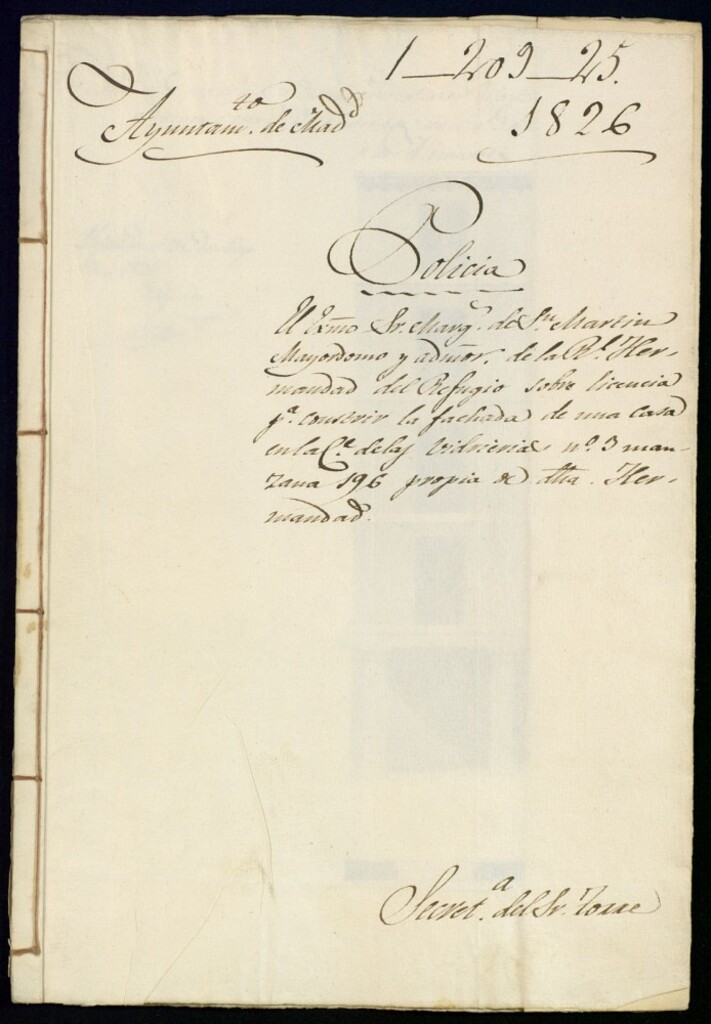 1—209—25.
Ayuntam.to de Madd
1826
Policia
El Exmo Sr. Marq.s de Sn Martin
Mayordomo y admor. de la Rl. Her-
mandad del Refugio sobre licencia
pa. construir la fachada de una casa
en la Ce. de las Vidrierias nº. 3 man-
zana 196 propia de dha. Her-
mandad.
Secret.a del Sr. Torre